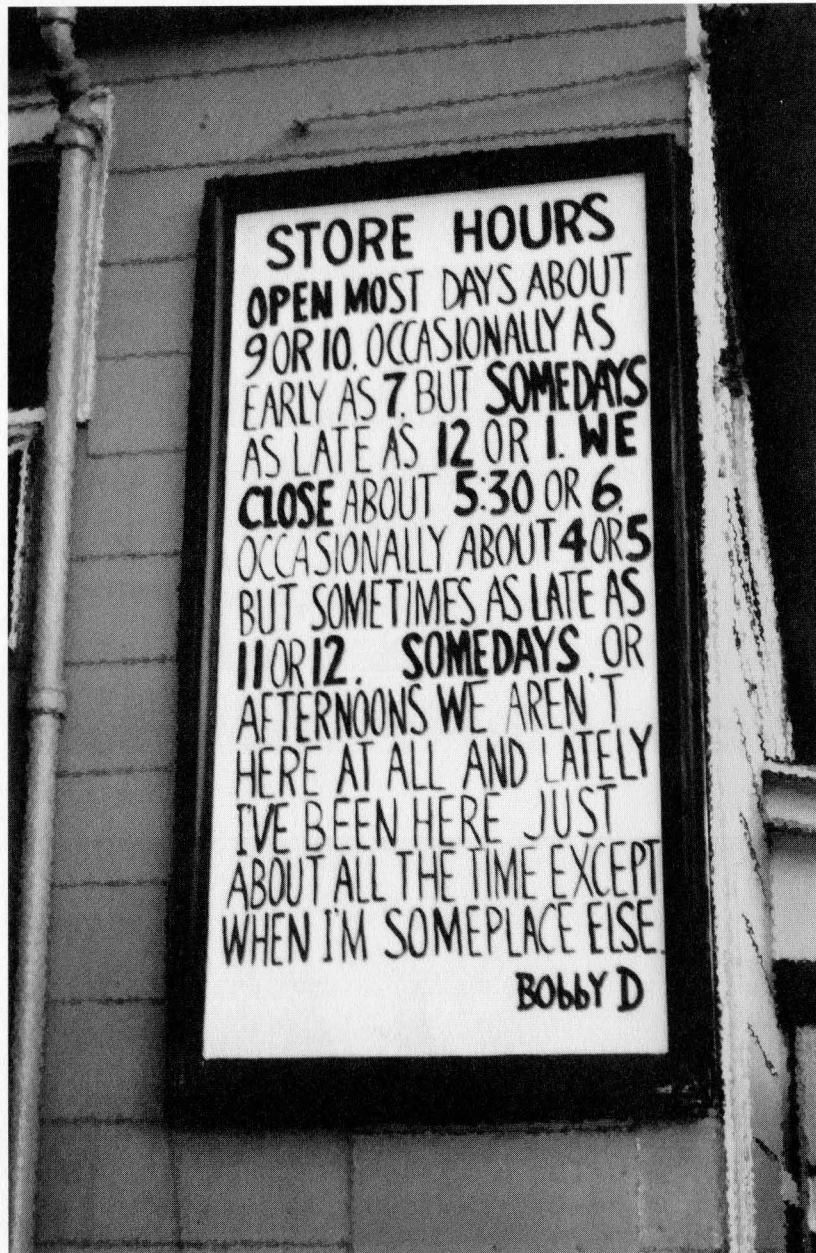 STORE HOURS
OPEN MOST DAYS ABOUT
9 OR 10. OCCASIONALLY AS
EARLY AS 7. BUT SOMEDAYS
AS LATE AS 12 OR 1. WE
CLOSE ABOUT 5:30 OR 6.
OCCASIONALLY ABOUT 4 OR 5
BUT SOMETIMES AS LATE AS
11 OR 12. SOMEDAYS OR
AFTERNOONS WE AREN'T
HERE AT ALL AND LATELY
I'VE BEEN HERE JUST
ABOUT ALL THE TIME EXCEPT
WHEN I'M SOMEPLACE ELSE.
BObbY D